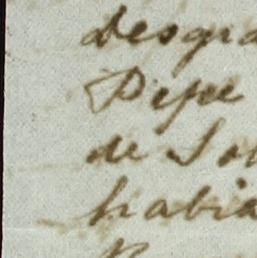 desgra
Pepe
de Sol
habia